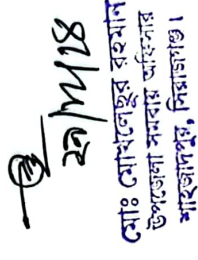 মোঃ মোখলেছুর রহমান
উপজেলা সমবায় অফিসার
শাহজাদপুর, সিরাজগঞ্জ।